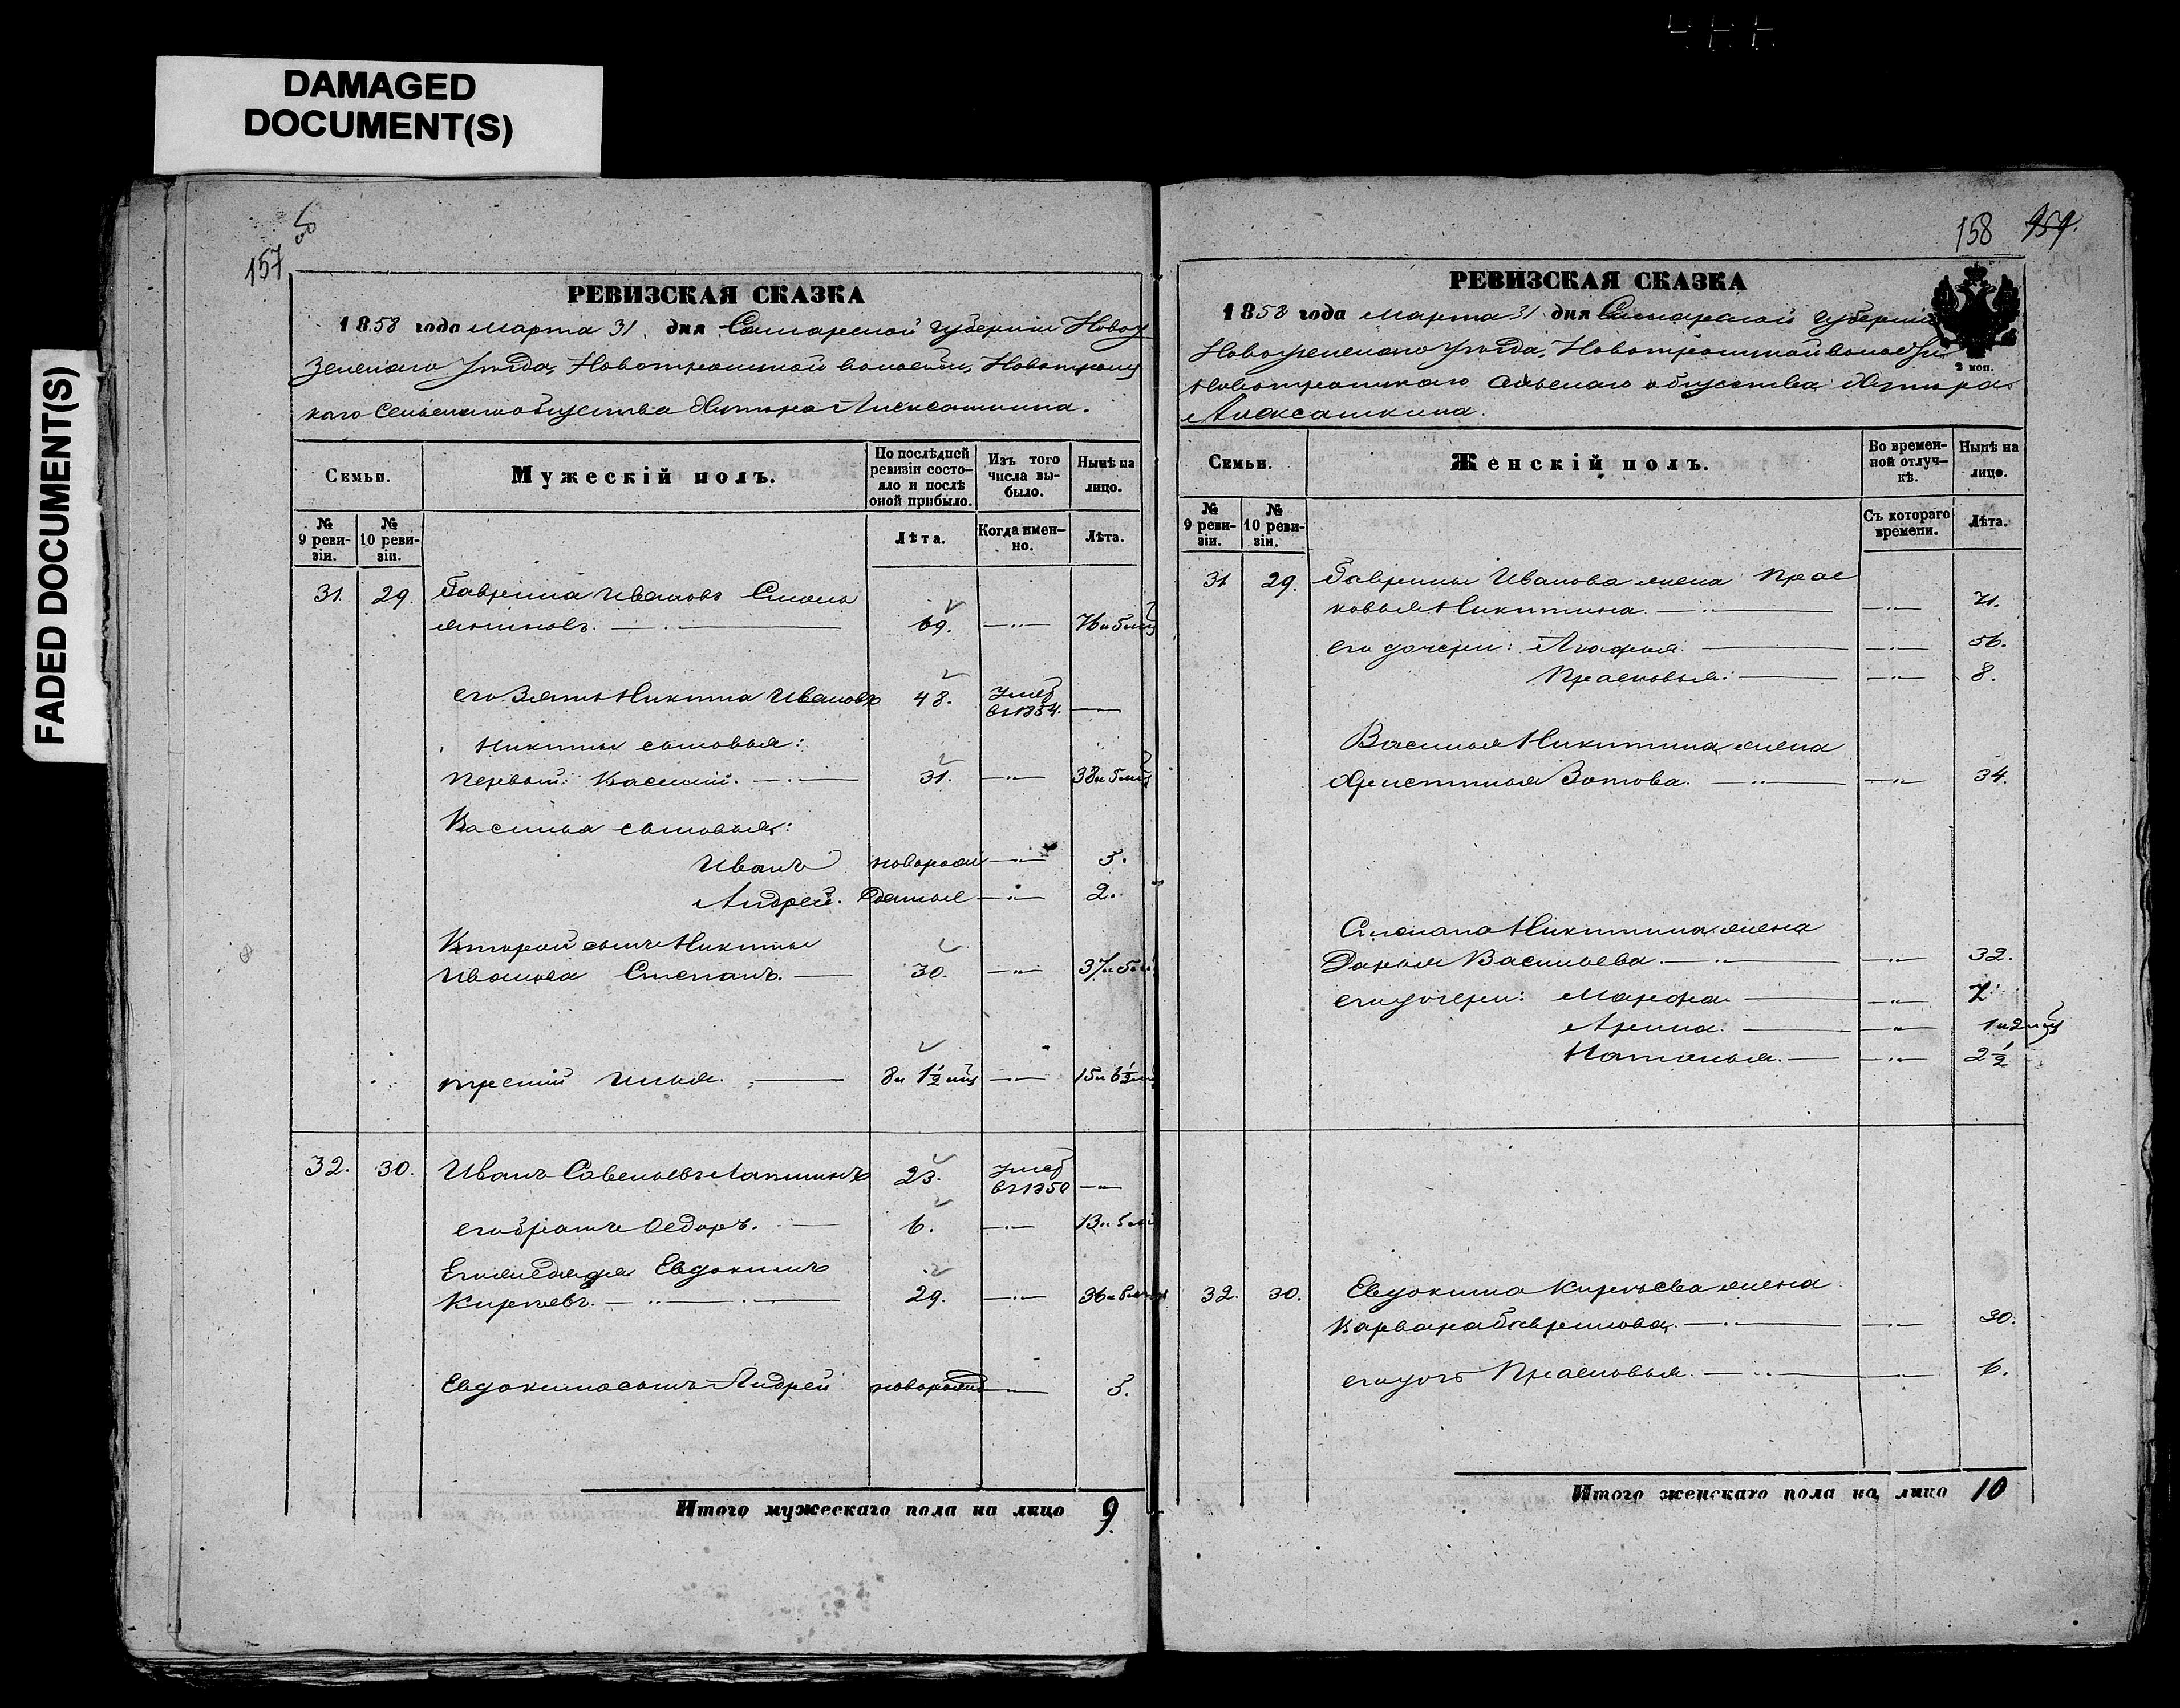 DAMAGED
DOCUMENT(S)
FADED DOCUMENT(S)
157
РЕВИЗСКАЯ СКАЗКА
1858 года марта 31 дня Самарской губернии Новоу
зенскаго Уѣзда, Новотроицкой волости, Новотроиц
каго Сельскаго общества Хутора Алексашкина.
Семьи.
Мужескій полъ.
По послѣдней ревизіи состояло и послѣ оной прибыло.
Изъ того числа выбыло.
Нынѣ на лицо.
№ 9 ревизіи.
№ 10 ревизіи.
Лѣта.
Когда именно.
Лѣта.
31. 29. Гаврила Ивановъ
69. 76 и 5 мцъ
его Зять Никита Ивановъ 48. умеръ въ 1854.
Никиты сыновья:
первый: Василий. 31. 38 и 5 мцъ
Василья сыновья:
Иванъ новорож 5.
Андрей. денные 2.
Второй сынъ Никиты
Иванова Степанъ. 30. 37 и 5 м
третий Илья. 8 и 1½ мцъ 15 и 6½ мцъ
32. 30. Иванъ Савельевъ Лапшинъ 23. умеръ въ 1850
его братъ Федоръ. 6. 13 и 5 мц
Евдокимъ
Кирѣевъ. 29. 36 и 5 мцъ
Евдокима сынъ Андрей новорожд 5.
Итого мужескаго пола на лицо 9.
158 157.
РЕВИЗСКАЯ СКАЗКА
1858 года марта 31 дня Самарской губернии
Новоузенскаго Уѣзда, Новотроицкой волости
Новотроицкаго Сельскаго общества Хутора
Алексашкина.
2 коп.
Семьи.
Женскій полъ.
Во временной отлучкѣ.
Нынѣ на лицо.
№ 9 ревизіи.
№ 10 ревизіи.
Съ котораго времени.
Лѣта.
31 29. Гаврилы Иванова жена Прас
ковья Никитина. 71.
его дочери: Агафья. 56.
Прасковья. 8.
Василья Никитина жена
Христинья Зотова. 34.
Степана Никитина жена
Дарья Васильева. 32.
его дочери: Марфа. 7.
Арина. 1 и 2 мцъ
Наталья. 2½
32. 30. Евдокима Кирѣева жена
Варвара Гаврилова. 30.
его дочь Прасковья. 6.
Итого женскаго пола на лицо 10